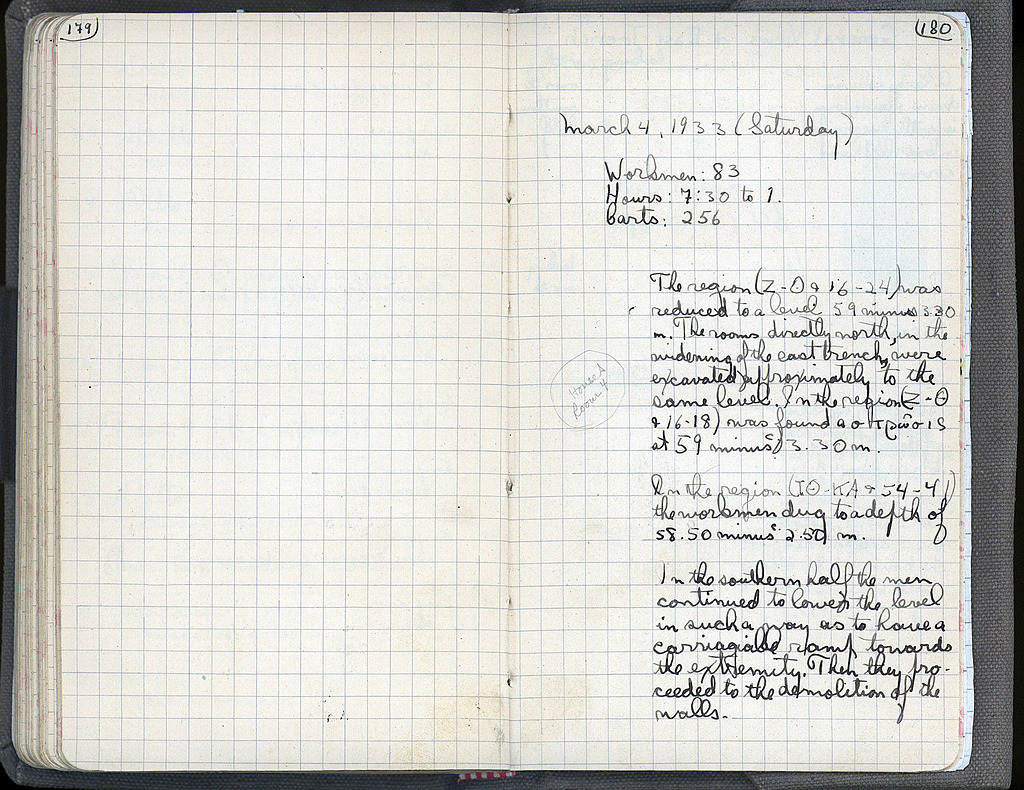 179
180
March 4, 1933 (Saturday)
Workmen: 83
Hours: 7:30 to 1.
Carts: 256
The region (Z-Θ & 16-24) was
reduced to a level 59 minus 3.30
m. The rooms directly north, in the
widening of the east trench, were
excavated approximately to the
same level. In the region (Z-Θ
& 16-18) was found a στρῶσις
at 59 minus 3.30 m.
House J
Room 4
In the region (ΙΘ-ΚΑ & 54-41)
the workmen dug to a depth of
58.50 minus 2.50 m.
In the southern half the men
continued to lower the level
in such a way as to have a
carriagiable ramp towards
the extremity. Then they pro-
ceeded to the demolition of the
walls.